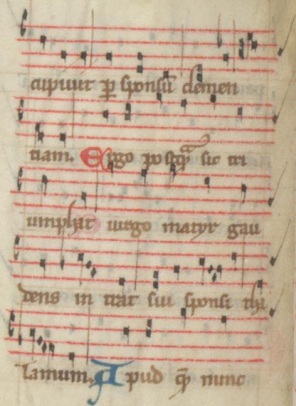 cupiunt p sponsū clemen
tiam. Ergo postq̄ sic tri
umphat uirgo martyr gau
dens intrat sui sponsi tha
lamum. Apud quē nunc